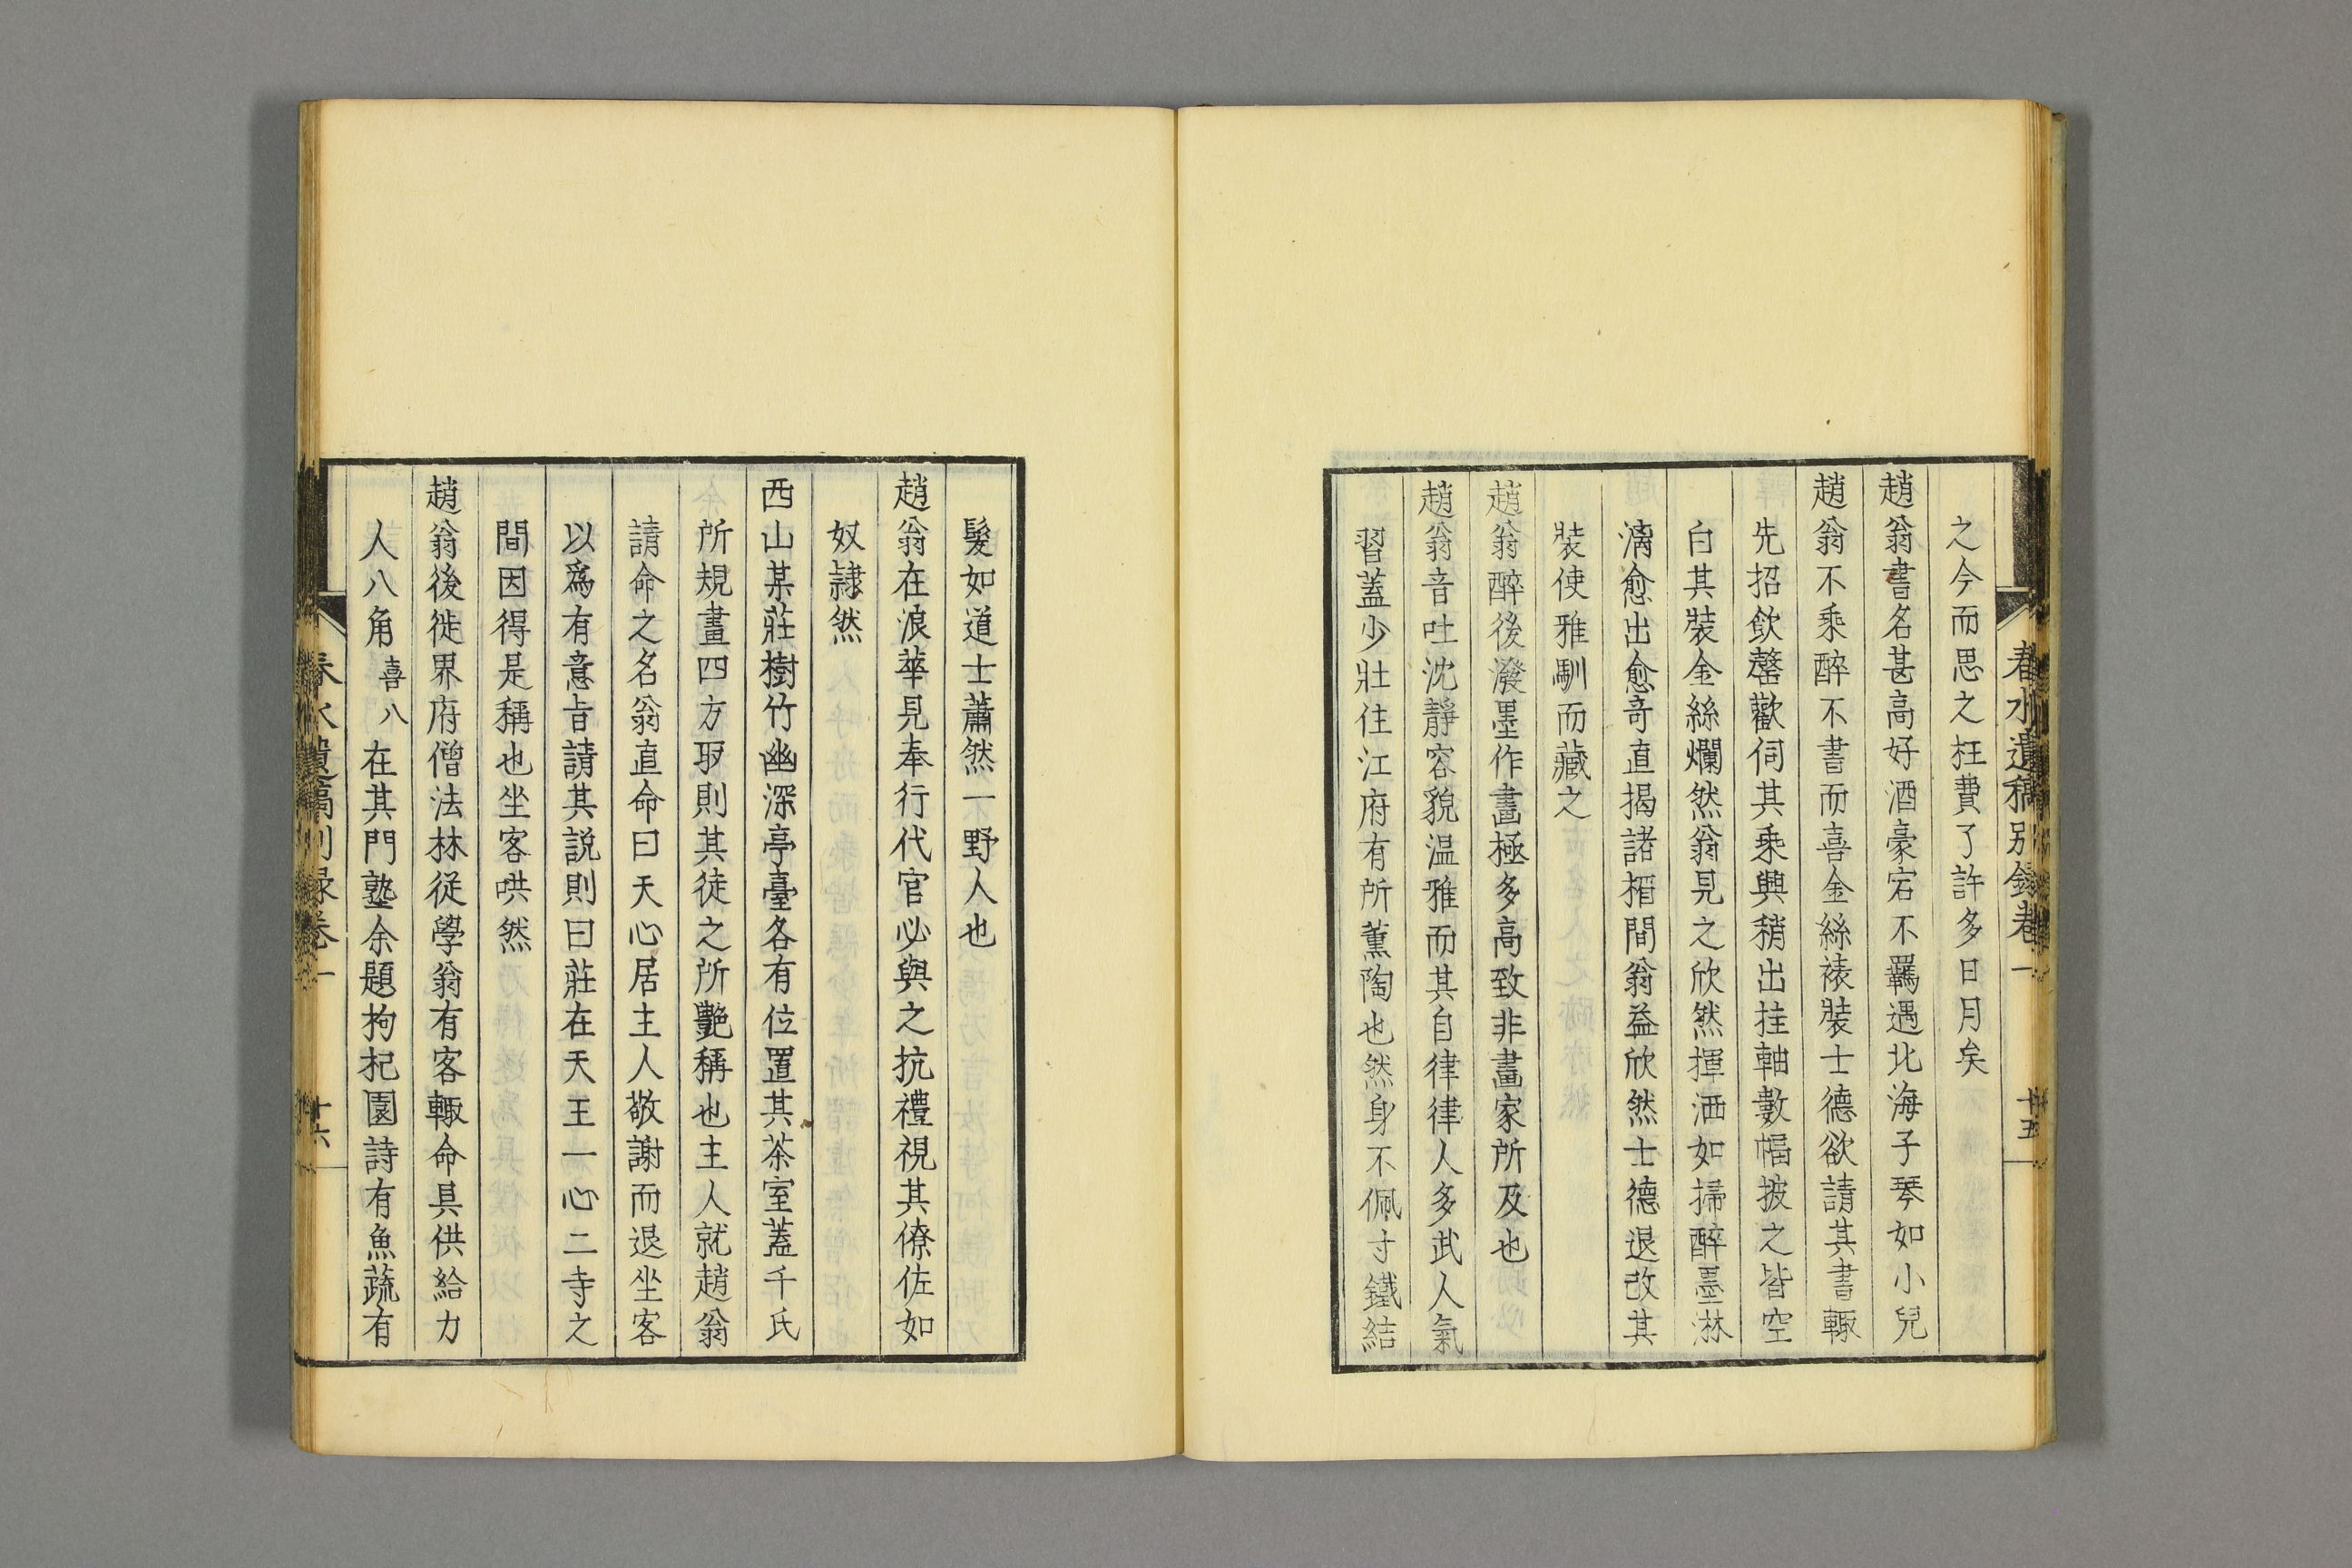 春水遺稿別錄卷一
十五
之今而思之枉費了許多日月矣
趙翁書名甚高好酒豪宕不羈遇北海子琴如小兒
趙翁不乘醉不書而喜金絲裱裝士德欲請其書輙
先招飲罄歡伺其乘興稍出挂軸數幅披之皆空
白其裝金絲爛然翁見之欣然揮洒如掃醉墨淋
漓愈出愈奇直揭諸楣間翁益欣然士德退改其
裝使雅馴而藏之
趙翁醉後潑墨作畫極多高致非畫家所及也
趙翁音吐沈靜容貌温雅而其自律律人多武人氣
習蓋少壯住江府有所薰陶也然身不佩寸鐵結
髮如道士蕭然一野人也
趙翁在浪華見奉行代官必與之抗禮視其僚佐如
奴隷然
西山某莊樹竹幽深亭臺各有位置其茶室蓋千氏
所規畫四方取則其徒之所艶稱也主人就趙翁
請命之名翁直命曰天心居主人敬謝而退坐客
以爲有意旨請其説則曰莊在天王一心二寺之
間因得是稱也坐客哄然
趙翁後徙界府僧法林従學翁有客輙命具供給力
人八角喜八在其門塾余題枸杞園詩有魚蔬有
春水遺稿別録卷一
十六